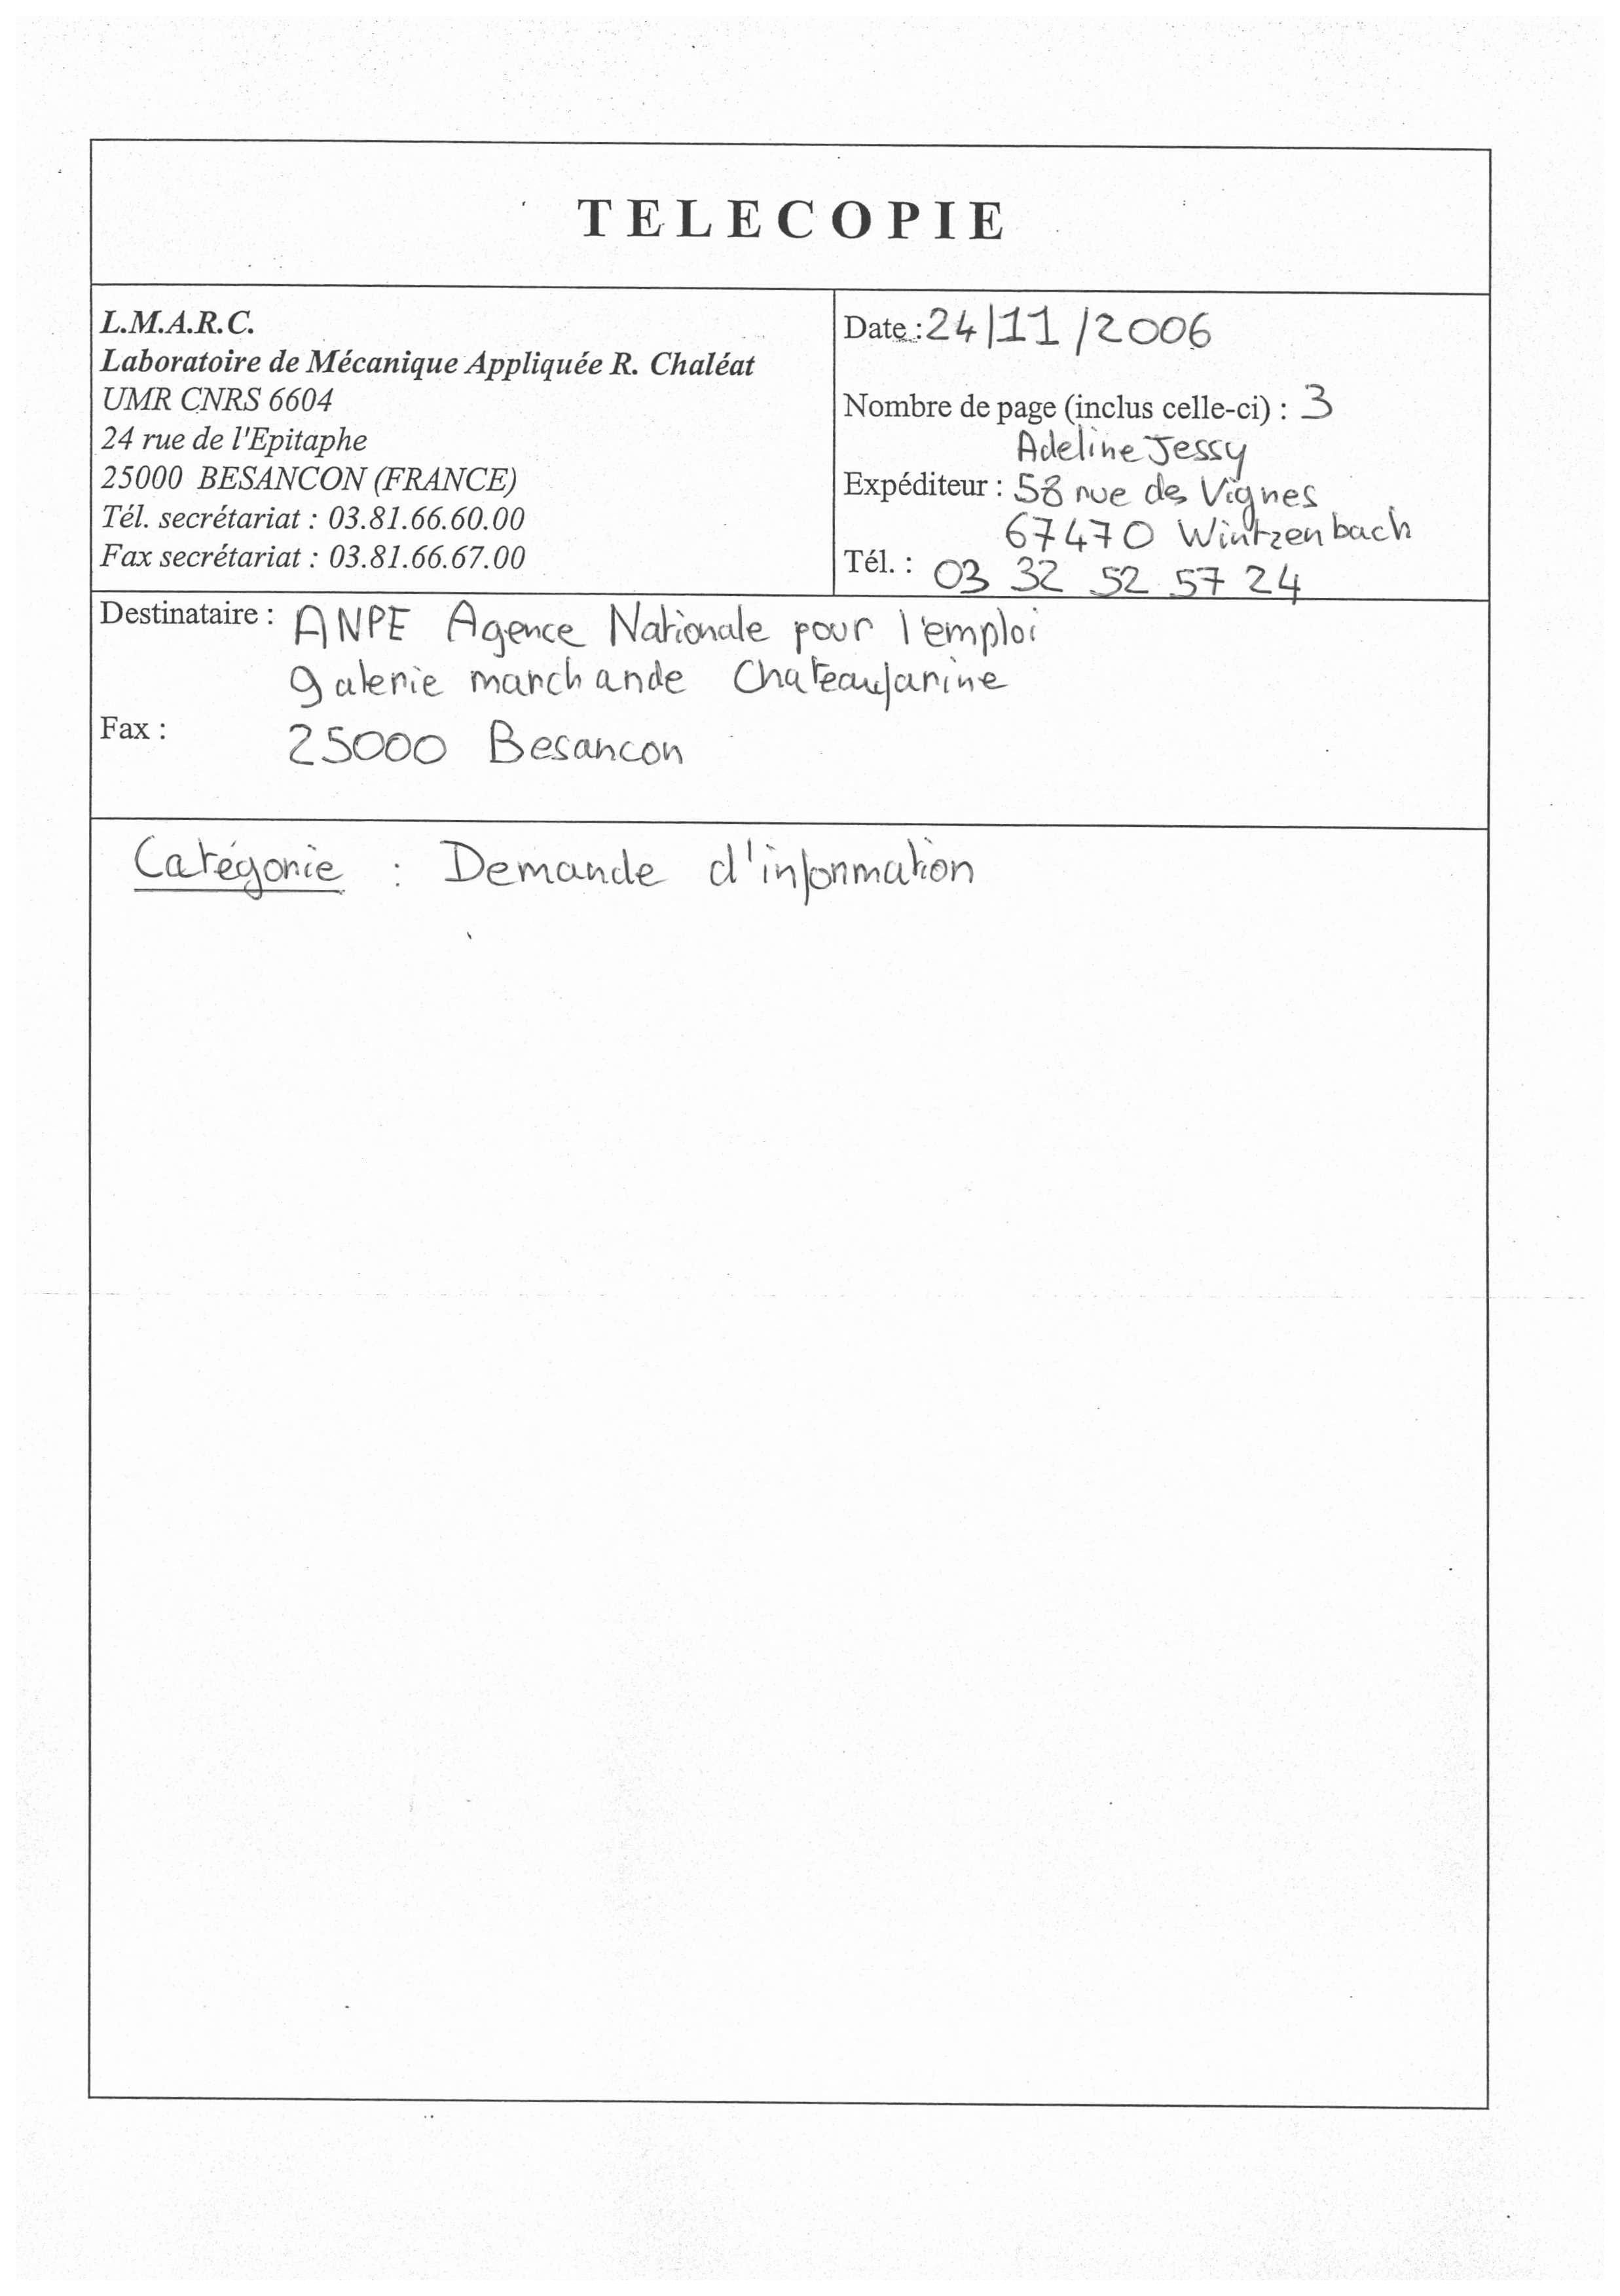 TELECOPIE
L.M.A.R.C.
Laboratoire de Mécanique Appliquée R. Chaléat
UMR CNRS 6604
24 rue de l'Epitaphe
25000 BESANCON (FRANCE)
Tél. secrétariat : 03.81.66.60.00
Fax secrétariat : 03.81.66.67.00
Date : 24/11/2006
Nombre de page (inclus celle-ci) : 3
Adeline Jessy
Expéditeur : 58 rue des Vignes
67470 Wintzenbach
Tél. : 03 32 52 57 24
Destinataire : ANPE Agence Nationale pour l'emploi
galerie marchande Chateaufarine
Fax : 25000 Besancon
Catégorie : Demande d'information